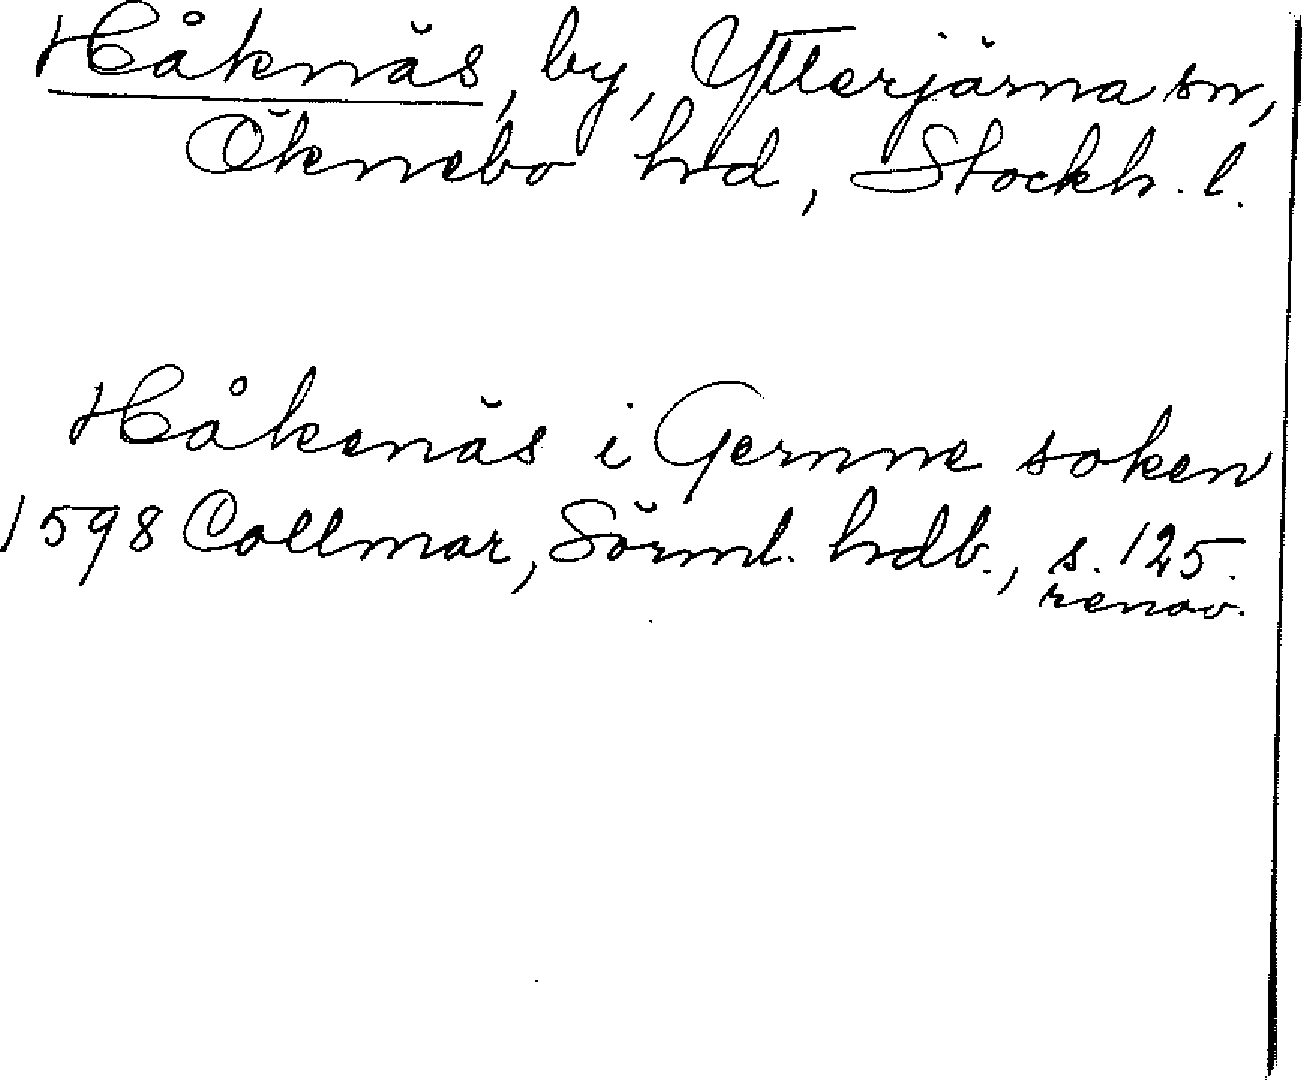 Håknäs, by, Ytterjärna sn,
Öknebo hd, Stockh. l.
Håkenäs i Gernne soken
1598 Collmar, Sörml. hdb., s. 125.
renov.